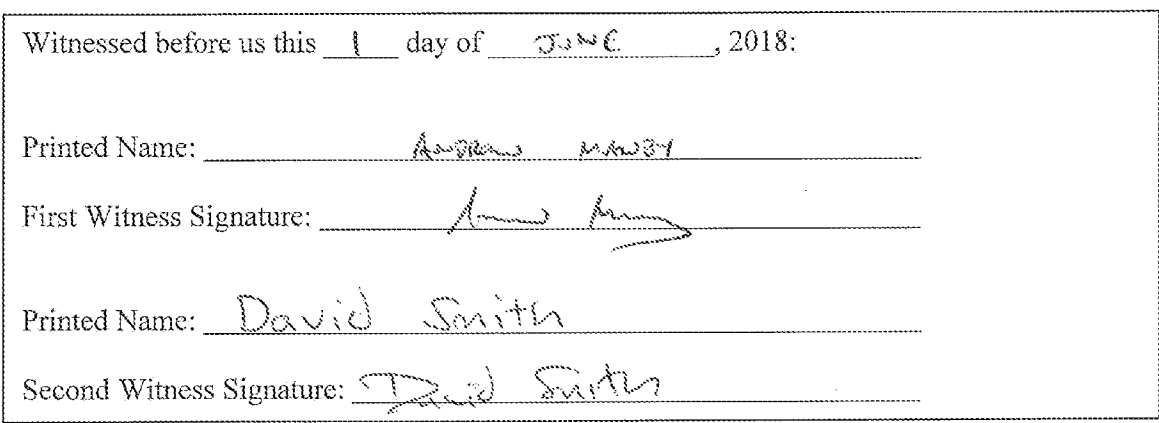 Witnessed before us this 1 day of JUNE, 2018:
Printed Name: ANDREW MAWBY
First Witness Signature:
Printed Name: David Smith
Second Witness Signature: David Smith